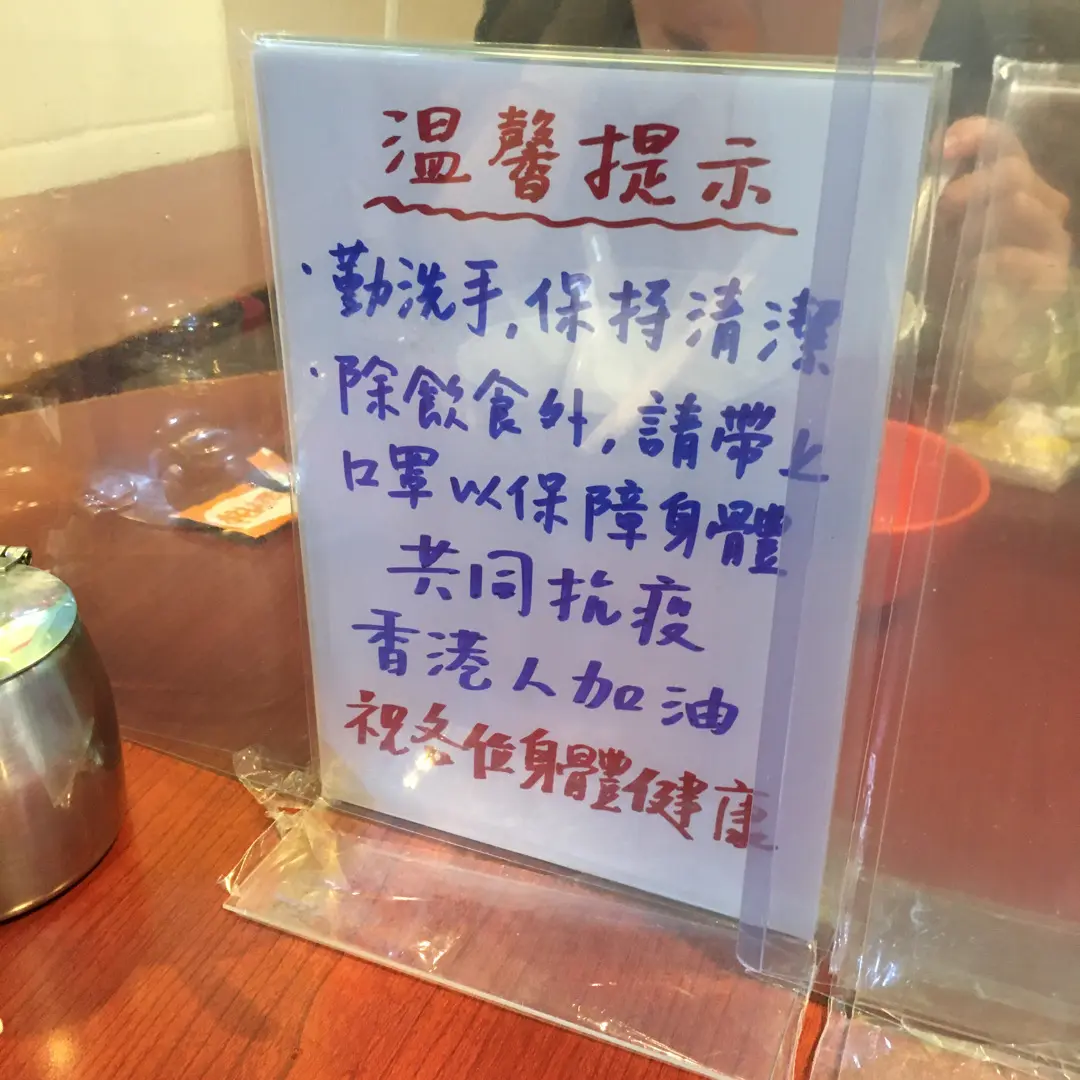 溫馨提示
·勤洗手,保持清潔
·除飲食外,請帶上
口罩以保障身體
共同抗疫
香港人加油
祝各位身體健康